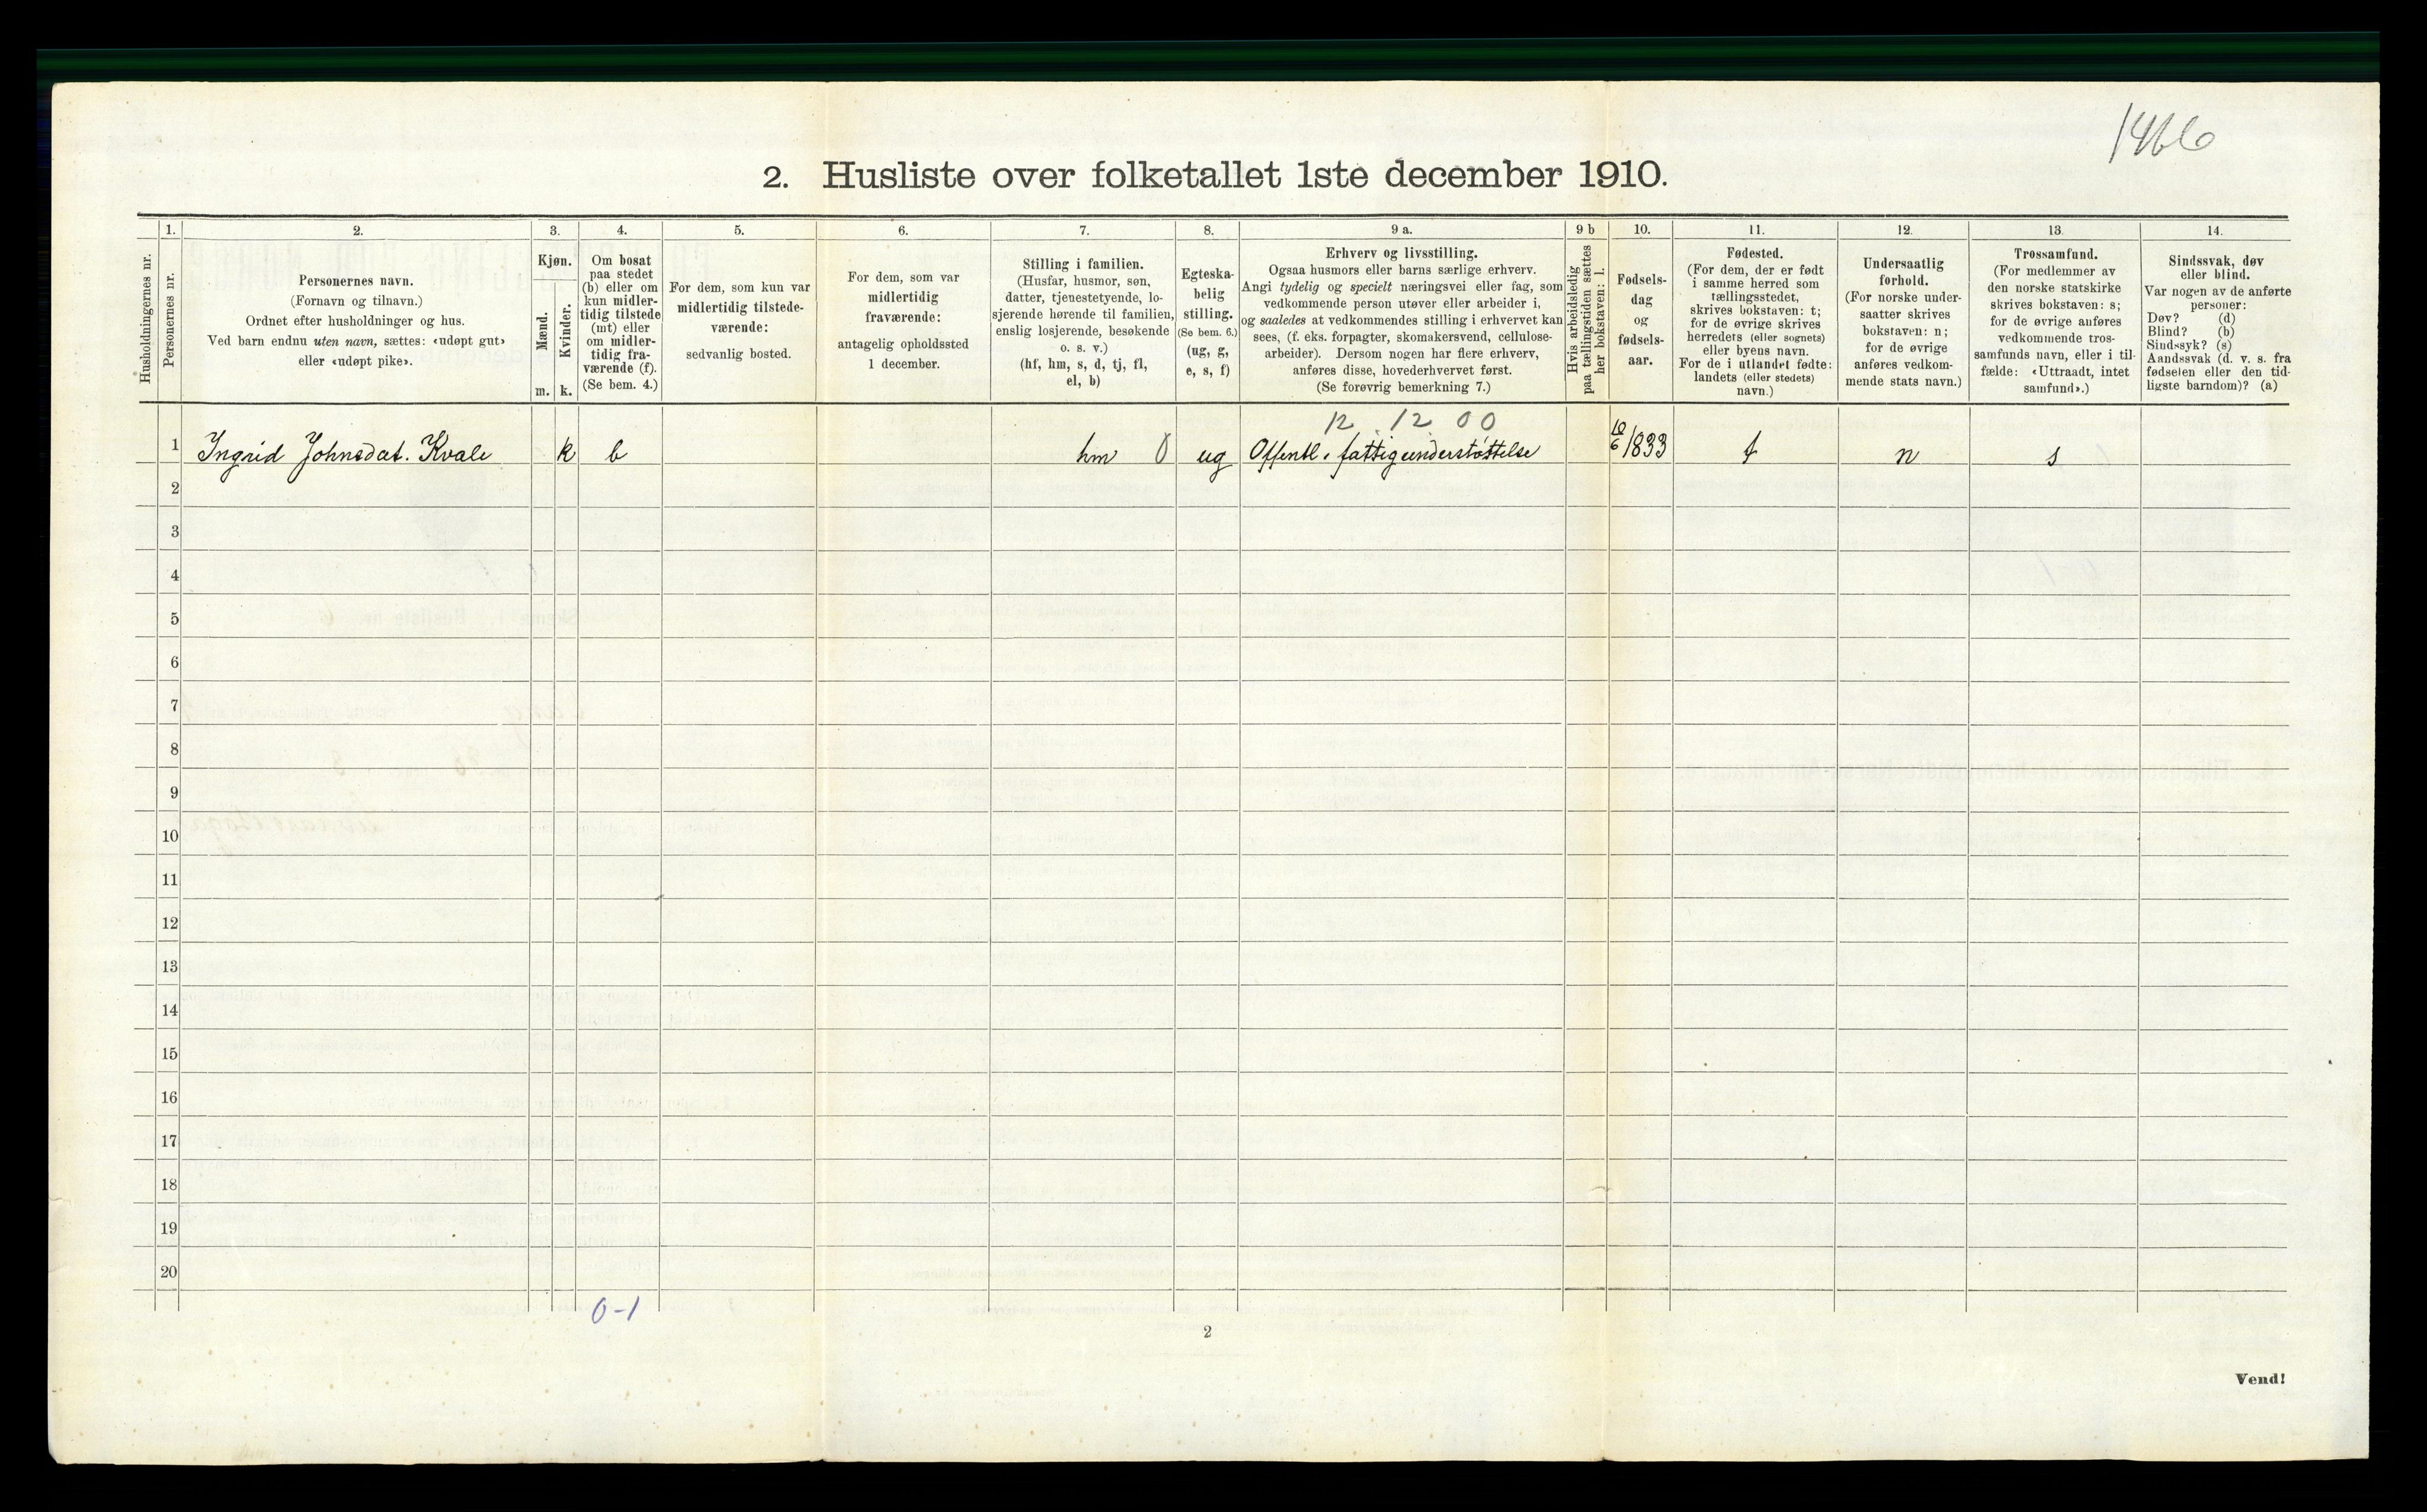 1466
2. Husliste over folketallet 1ste december 1910.
Husholdningernes nr.
1.
Personernes nr.
2.
Personernes navn.
(Fornavn og tilnavn.)
Ordnet efter husholdninger og hus.
Ved barn endnu uten navn, sættes: «udøpt gut»
eller «udøpt pike».
3.
Kjøn.
Mænd.
m.
Kvinder.
k.
4.
Om bosat
paa stedet
(b) eller om
kun midler-
tidig tilstede
(mt) eller
om midler-
tidig fra-
værende (f).
(Se bem. 4.)
5.
For dem, som kun var
midlertidig tilstede-
værende:
sedvanlig bosted.
6.
For dem, som var
midlertidig
fraværende:
antagelig opholdssted
1 december.
7.
Stilling i familien.
(Husfar, husmor, søn,
datter, tjenestetyende, lo-
sjerende hørende til familien,
enslig losjerende, besøkende
o. s. v.)
(hf, hm, s, d, tj, fl,
el, b)
8.
Egteska-
belig
stilling.
(Se bem. 6.)
(ug, g,
e, s, f)
9 a.
Erhverv og livsstilling.
Ogsaa husmors eller barns særlige erhverv.
Angi tydelig og specielt næringsvei eller fag, som
vedkommende person utøver eller arbeider i,
og saaledes at vedkommendes stilling i erhvervet kan
sees, (f. eks. forpagter, skomakersvend, cellulose-
arbeider). Dersom nogen har flere erhverv,
anføres disse, hovederhvervet først.
(Se forøvrig bemerkning 7.)
9 b
Hvis arbeidsledig
paa tællingstiden sættes
her bokstaven: l.
10.
Fødsels-
dag
og
fødsels-
aar.
11.
Fødested.
(For dem, der er født
i samme herred som
tællingsstedet,
skrives bokstaven: t;
for de øvrige skrives
herredets (eller sognets)
eller byens navn.
For de i utlandet fødte:
landets (eller stedets)
navn.)
12.
Undersaatlig
forhold.
(For norske under-
saatter skrives
bokstaven: n;
for de øvrige
anføres vedkom-
mende stats navn.)
13.
Trossamfund.
(For medlemmer av
den norske statskirke
skrives bokstaven: s;
for de øvrige anføres
vedkommende tros-
samfunds navn, eller i til-
fælde: «Uttraadt, intet
samfund».)
14.
Sindssvak, døv
eller blind.
Var nogen av de anførte
personer:
Døv? (d)
Blind? (b)
Sindssyk? (s)
Aandssvak (d. v. s. fra
fødselen eller den tid-
ligste barndom)? (a)
12.12 00
1 Ingrid Johnsdat. Kvale k b hm 0 ug Offentl. fattigunderstøttelse 10/6 1833 t n s
2
3
4
5
6
7
8
9
10
11
12
13
14
15
16
17
18
19
20
0-1
2
Vend!